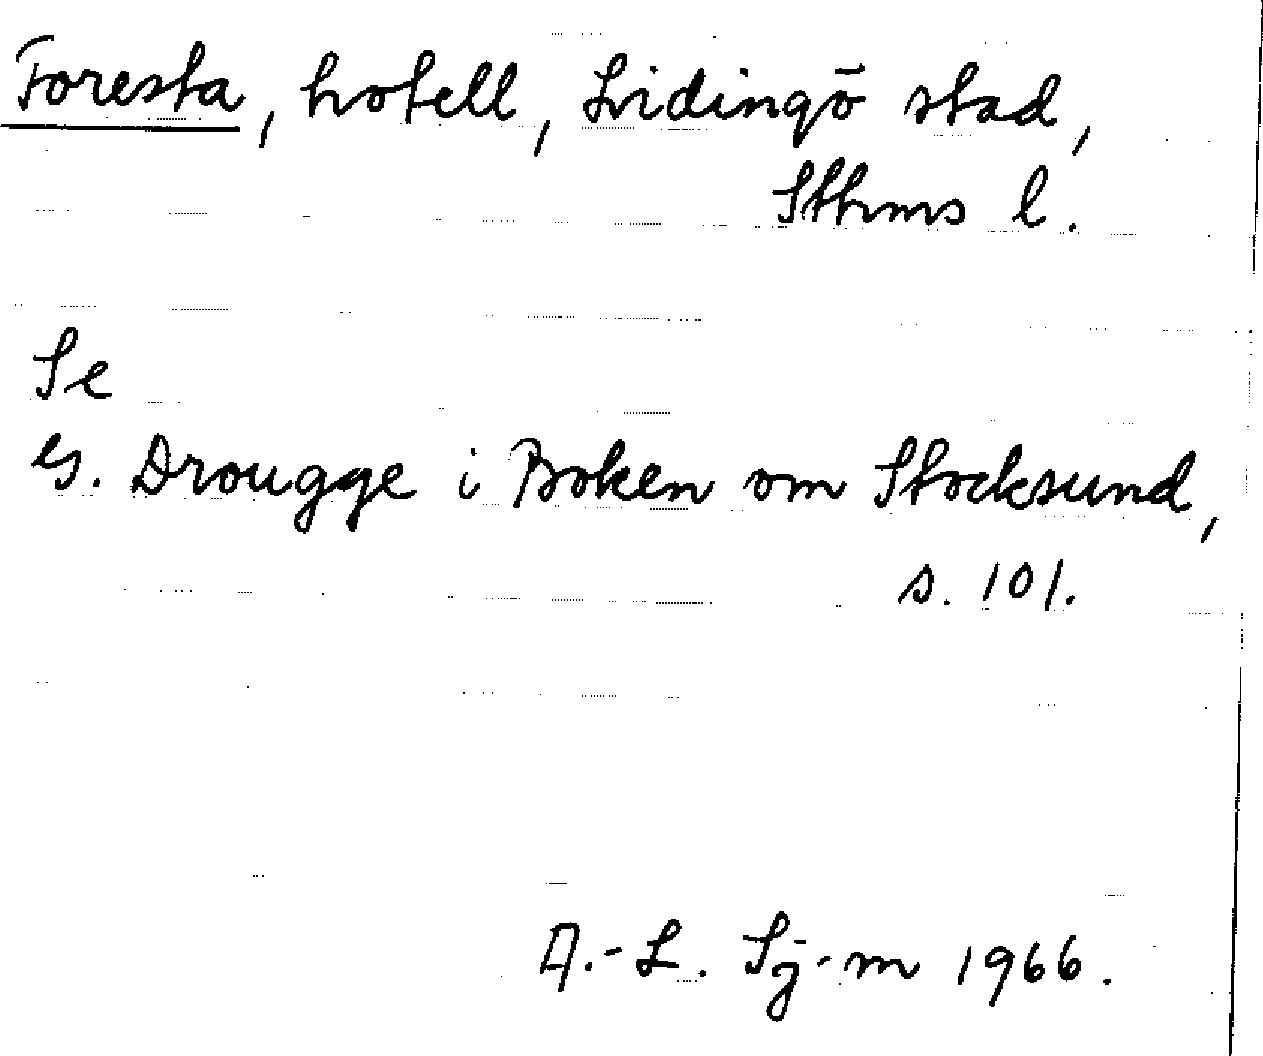 Foresta, hotell, Lidingö stad,
Sthms l.
Se
G. Drougge i Boken om Stocksund,
s. 101.
A.-L. Sj-m 1966.